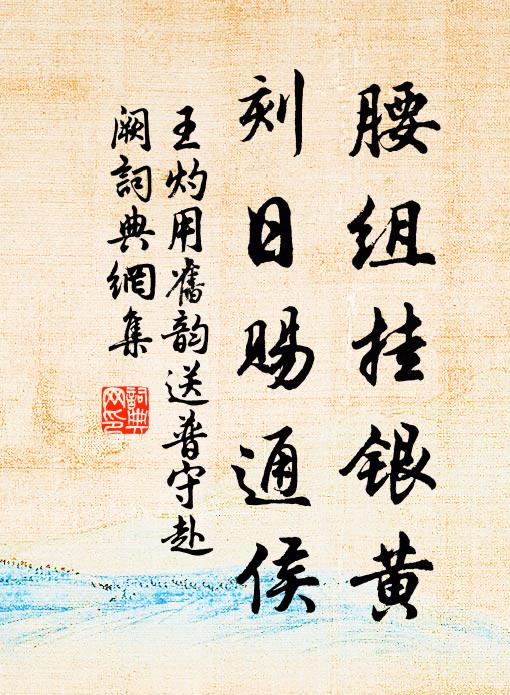 腰组挂银黄
刻日赐通侯
王灼用旧韵送普守赴
阙词典网集
词典
网印